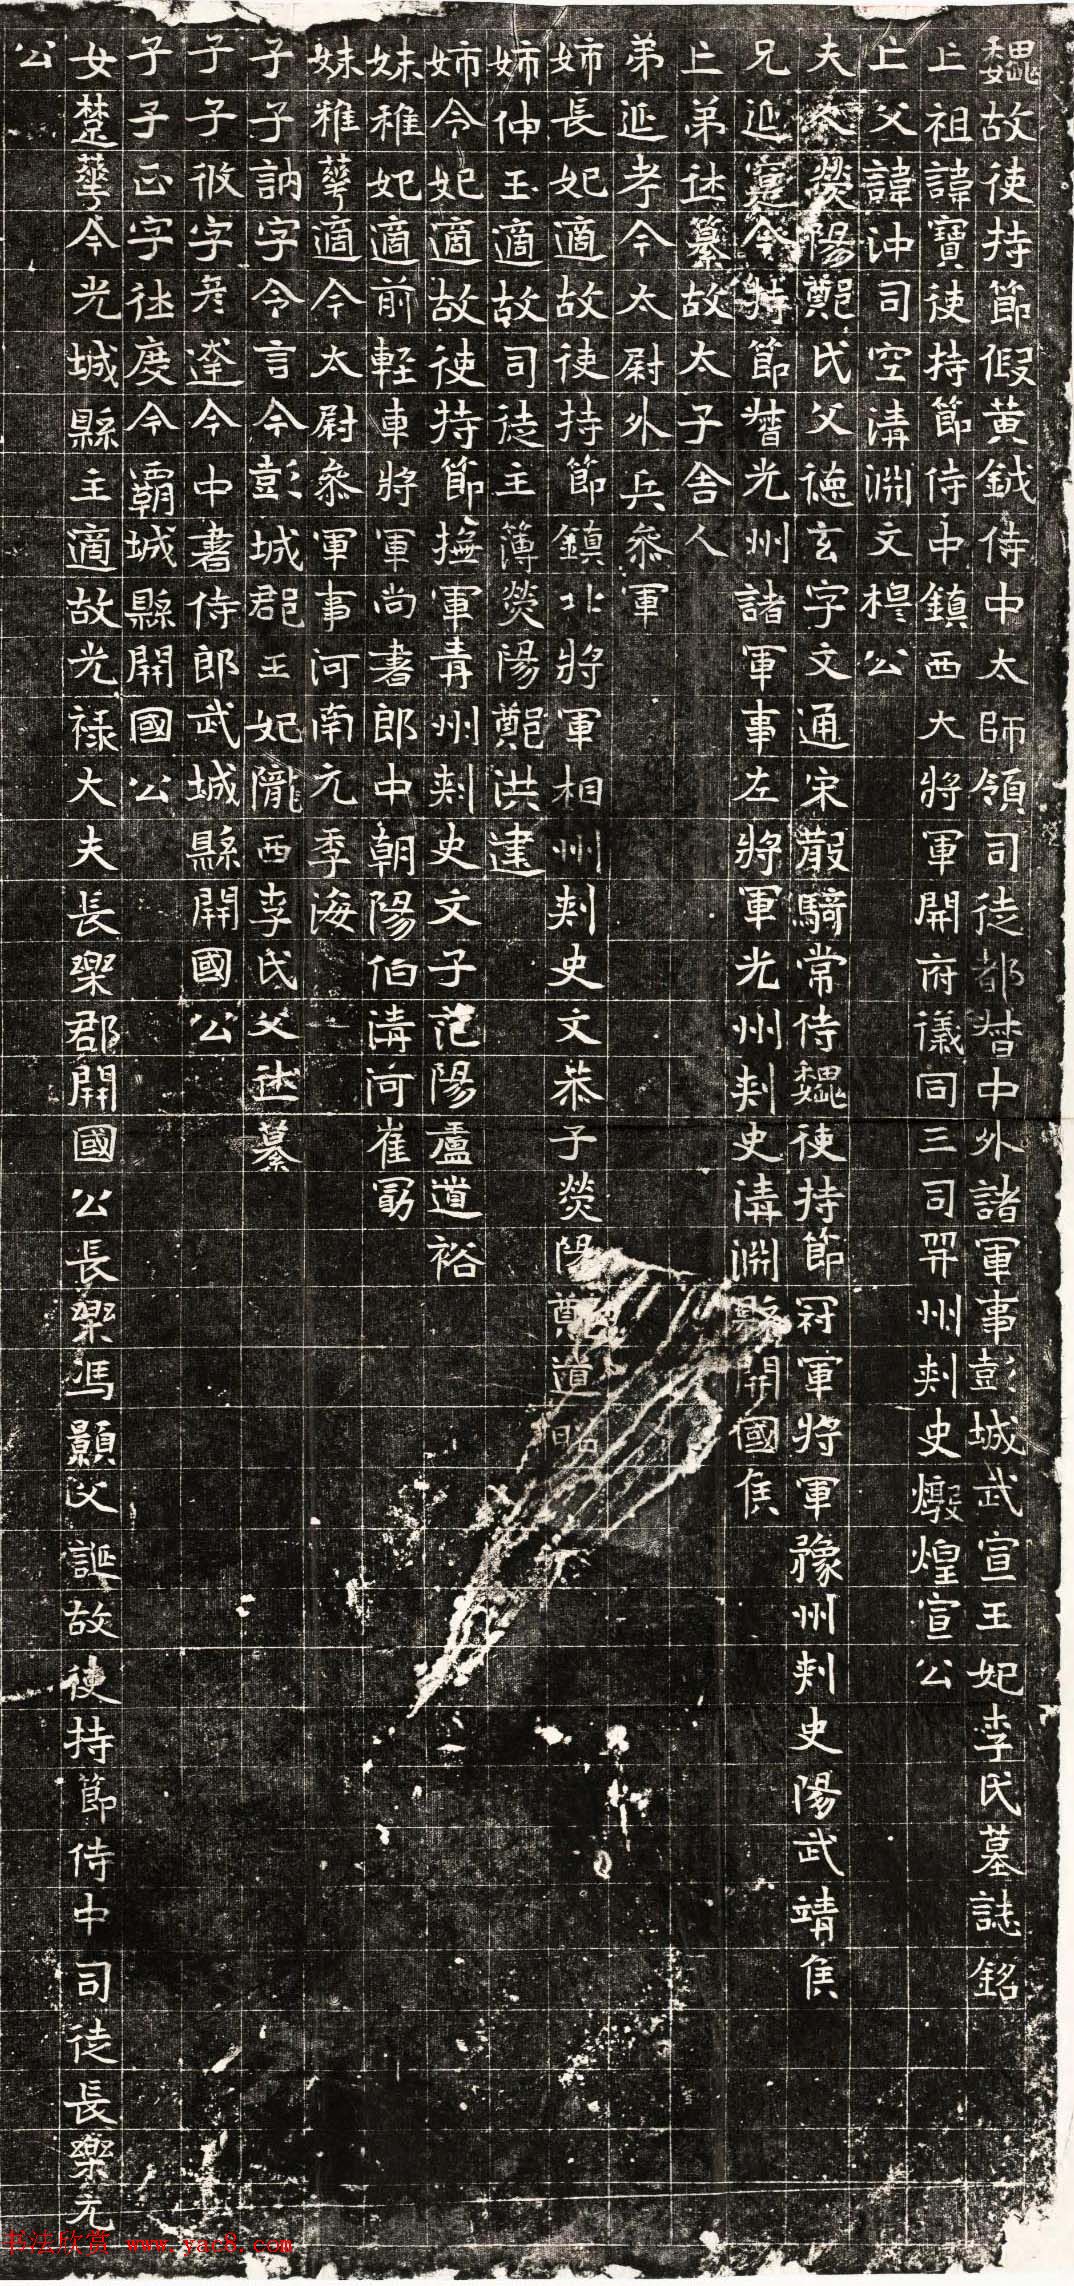 魏故使持節假黃鉞侍中太師領司徒都督中外諸軍事彭城武宣王妃李氏墓誌銘
亡祖諱寶使持節侍中鎮西大將軍開府儀同三司并州刺史燉煌宣公
亡父諱沖司空清淵文穆公
夫人熒陽鄭氏父德玄字文通宋散騎常侍魏使持節冠軍將軍豫州刺史陽武靖侯
兄延寔今持節督光州諸軍事左將軍光州刺史清淵縣開國侯
亡弟休纂故太子舍人
弟延考今太尉外兵參軍
姉長妃適故使持節鎮北將軍相州刺史文恭子熒陽鄭道昭
姉仲玉適故司徒主簿熒陽鄭洪建
姉令妃適故使持節撫軍青州刺史文子范陽盧道裕
妹稚妃適前輕車將軍尚書郎中朝陽伯清河崔勗
妹稚華適今太尉參軍事河南元季海
子子訥字令言今彭城郡王妃隴西李氏父休纂
子子攸字彥達今中書侍郎武城縣開國公
子子正字休度今霸城縣開國公
女楚華今光城縣主適故光祿大夫長樂郡開國公長樂馮顥父誕故使持節侍中司徒長樂元
公
书法欣赏 www.yac8.com